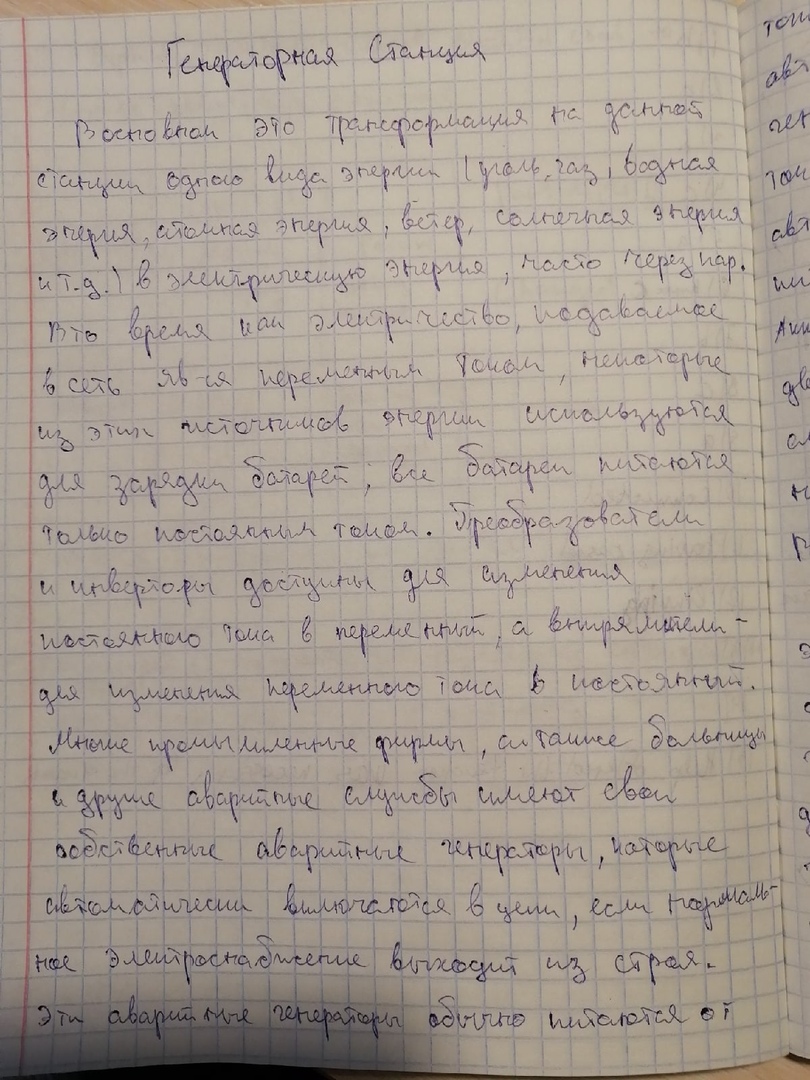 Генераторная Станция
В основном это трансформация на данной
станции одного вида энергии (уголь, газ, водная
энергия, атомная энергия, ветер, солнечная энергия
и т.д.) в электрическую энергия, часто через пар.
В то время как электричество, подаваемое
в сеть яв-ся переменным током, некоторые
из этих источников энергии используются
для зарядки батарей; все батареи питаются
только постоянным током. Преобразователи
и инверторы доступны для изменения
постоянного тока в переменный, а выпрямители-
для изменения переменного тока в постоянный.
Многие промышленные фирмы, а также больницы
и другие аварийные службы имеют свои
собственные аварийные генераторы, которые
автоматически включаются в цепи, если нормаль-
ное электроснабжение выходит из строя.
Эти аварийные генераторы обычно питаются от